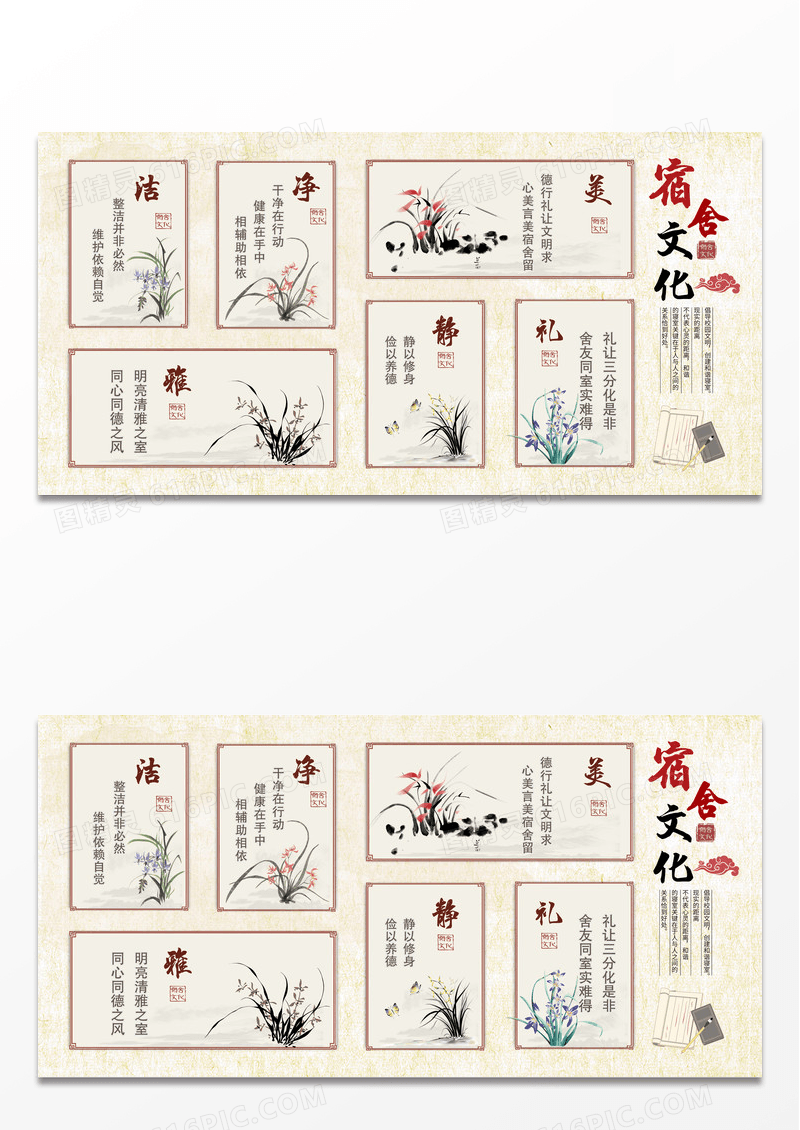 宿舍
文化
宿舍
文化
倡导校园文明，创建和谐寝室。
现实的距离
不代表心灵的距离，和谐
的寝室关键在于人与人之间的
关系恰到好处。
美
宿舍
文化
德行礼让文明求
心美言美宿舍留
净
宿舍
文化
干净在行动
健康在手中
相辅助相依
洁
宿舍
文化
整洁并非必然
维护依赖自觉
礼
宿舍
文化
礼让三分化是非
舍友同室实难得
静
宿舍
文化
静以修身
俭以养德
雅
宿舍
文化
明亮清雅之室
同心同德之风
宿舍
文化
宿舍
文化
倡导校园文明，创建和谐寝室。
现实的距离
不代表心灵的距离，和谐
的寝室关键在于人与人之间的
关系恰到好处。
美
宿舍
文化
德行礼让文明求
心美言美宿舍留
净
宿舍
文化
干净在行动
健康在手中
相辅助相依
洁
宿舍
文化
整洁并非必然
维护依赖自觉
礼
宿舍
文化
礼让三分化是非
舍友同室实难得
静
宿舍
文化
静以修身
俭以养德
雅
宿舍
文化
明亮清雅之室
同心同德之风
图精灵 616PIC.COM